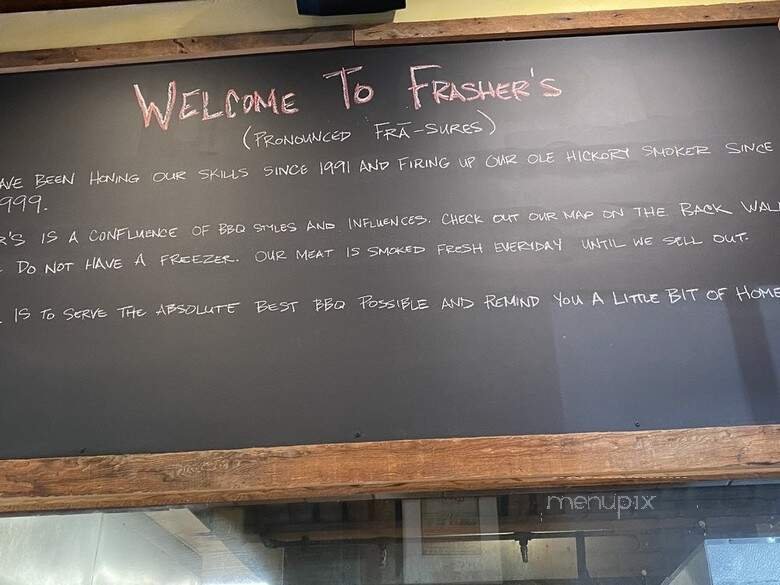 WELCOME TO FRASHER'S
(PRONOUNCED FRĀ-SURES)
AVE BEEN HONING OUR SKILLS SINCE 1991 AND FIRING UP OUR OLE HICKORY SMOKER SINCE
999.
R'S IS A CONFLUENCE OF BBQ STYLES AND INFLUENCES. CHECK OUT OUR MAP ON THE BACK WAL
DO NOT HAVE A FREEZER. OUR MEAT IS SMOKED FRESH EVERYDAY UNTIL WE SELL OUT.
IS TO SERVE THE ABSOLUTE BEST BBQ POSSIBLE AND REMIND YOU A LITTLE BIT OF HOME
menupix